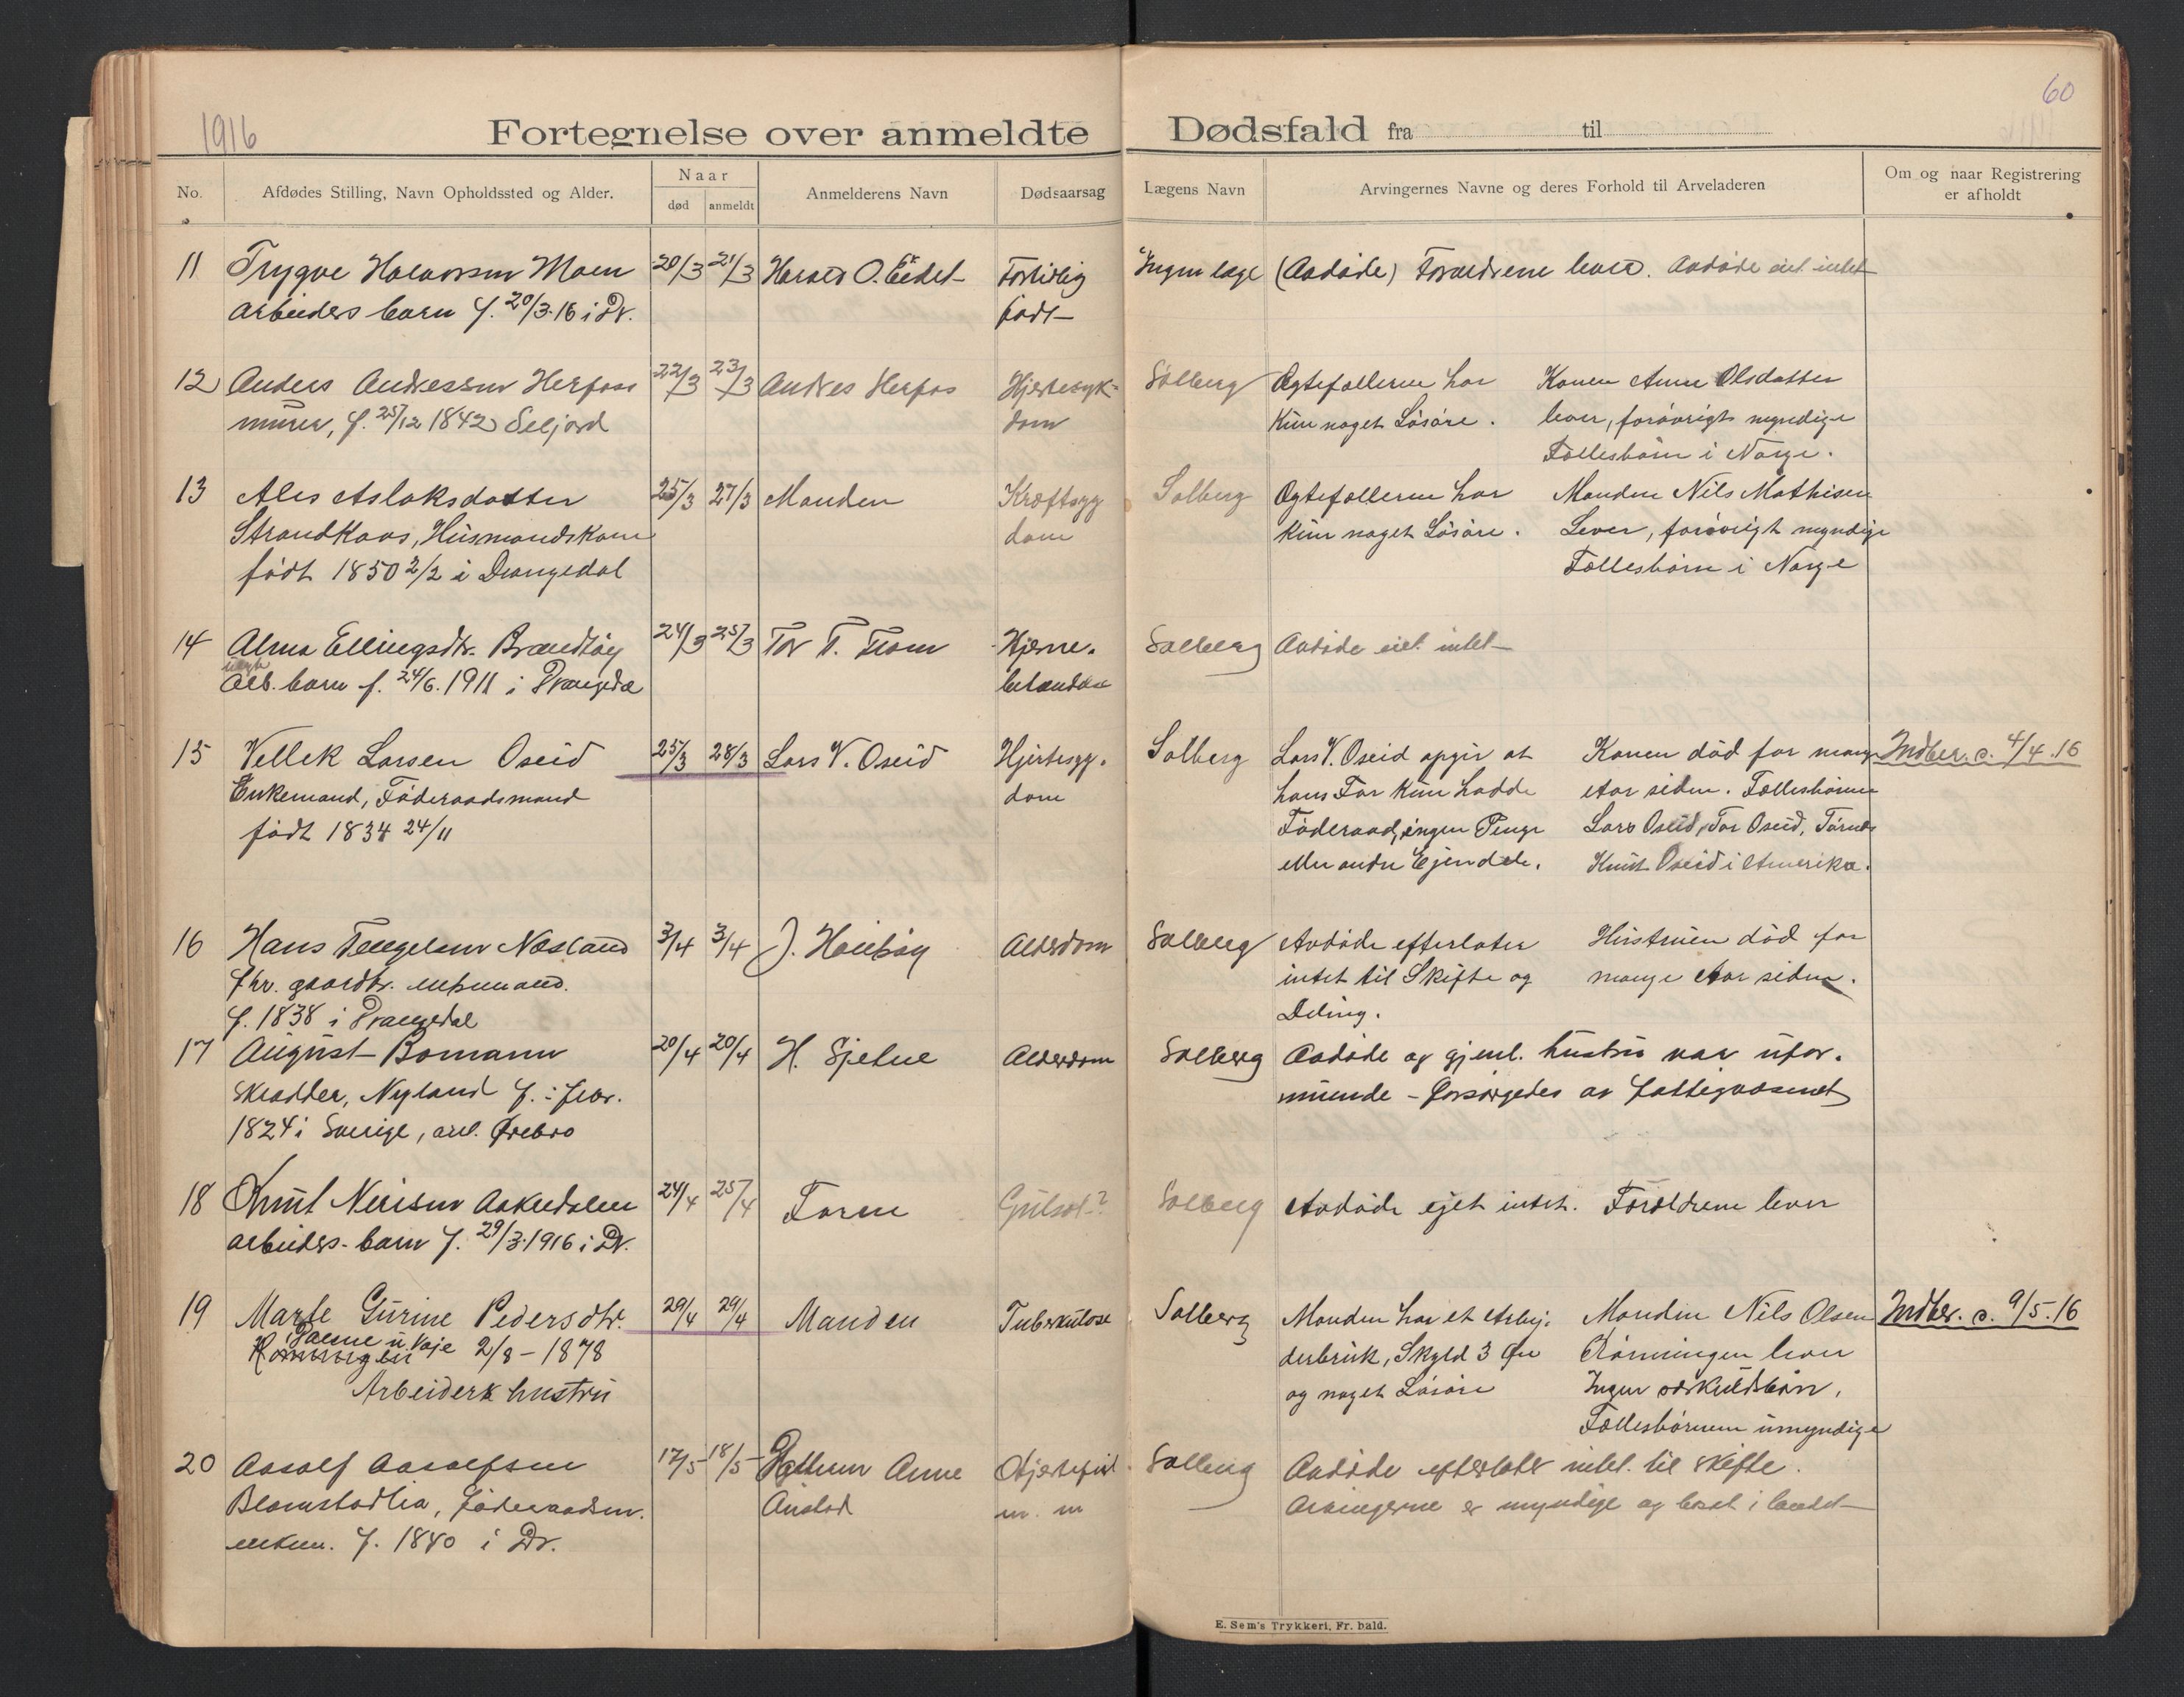 1916
60
Fortegnelse over anmeldte Dødsfald fra til
No.
Afdødes Stilling, Navn Opholdssted og Alder.
Naar
død
anmeldt
Anmelderens Navn
Dødsaarsag
Lægens Navn
Arvingernes Navne og deres Forhold til Arveladeren
Om og naar Registrering
er afholdt
11 Trygve Halvorsen Moen 20/3 21/3 Harald O. Eidet Fortidlig Ingen læge (Avdøde) Forældrene lever. Avdøde eiet intet
arbeiders barn f. 20/3.16 i Dr. født
12 Anders Andressen Herfoss 22/3 23/3 Andres Herfos Hjertesyk= Solberg Ægtefællerne har Konen Anne Olsdatter
murer, f. 25/12 1842 Seljord dom kun noget Løsøre. lever, forøvrigt myndige
Fællesbørn i Norge.
13 Ales Aslaksdatter 25/3 27/3 Manden Kræftsyg Solberg Ægtefællerne har Manden Nils Mathisen
Strandkaas, Husmandskone dom kun noget Løsøre. Lever, forøvrigt myndige
født 1850 2/2 i Drangedal Fællesbørn i Norge
14 Alma Ellingsdtr. Brændtøy 24/3 25/3 Tor T. Hjerne. Solberg Avdøde eiet intet
barn f. 24/6.1911 i Drangedal
15 Vellek Larsen Oseid 25/3 28/3 Lars V. Oseid Hjertesyg. Solberg Lars V. Oseid opgir at Konen død for mange Indber. s. 4/4.16
Enkemand, Føderaadsmand dom hans Far kun hadde Aar siden. Fællesbørnene
født 1834 24/11 Føderaad, ingen Penge Lars Oseid, Tor Oseid, Tørdal
eller andre Ejendele. Knut Oseid i Amerika.
16 Hans Tengelsen Næsland 3/4 3/4 J. Alderdom Solberg Avdøde efterlater Hustruen død for
fhv. gaardbr. enkemand. intet til Skifte og mange Aar siden.
f. 1838 i Drangedal Deling.
17 August Bomann 20/4 20/4 H. Alderdom Solberg Avdøde og gjenl. hustru var ufor.
skradder, Nyland f. i febr. muende - forsørgedes av fattigvæsenet
1824 i Sverige, Ørebro
18 Knut Nerisen Aakredalen 24/4 25/4 Faren Gulsot? Solberg Avdøde ejet intet. Forældrene lever
arbeiders-barn f. 29/3.1916 i Dr.
19 Marte Gurine Pedersdtr. 29/4 29/4 Manden Tuberkulose Solberg Manden har et Arbej: Manden Nils Olsen Indber. s. 9/5.16
2/8-1878 derbruk, Skyld 3 Øre Rønningen lever
Arbeiders hustru og noget Løsøre Ingen særkuldsbørn,
Fællesbørnene umyndige
20 Aasolf Aasolfsen 17/5 18/5 Anne Hjertefeil Solberg Avdøde efterlater intet til skifte.
Blomstadlia, føderaadsm. m. m Arvingerne er myndige og bosat i landet
enkem. f. 1840 i Dr.
E. Sem's Trykkeri, Fr. hald.